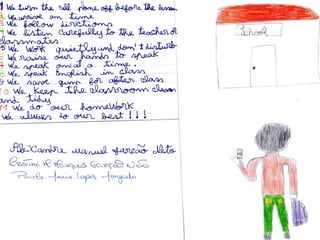 1 We turn the cell phone off before the lesson
We arrive on time
3 We follow directions
4 We listen carefully to the teacher or
classmates
5 We work quietly and don't disturb
6 We raise our hands to speak
7 We speak on at a time.
8 We speak English in class
9 We save gum for after class
10 We keep the classroom clean
and tidy
11 We do our homework
We always do our best!!!
School
Alexandre Manuel Falcão Neto
Paula Maria Lopes Morgado